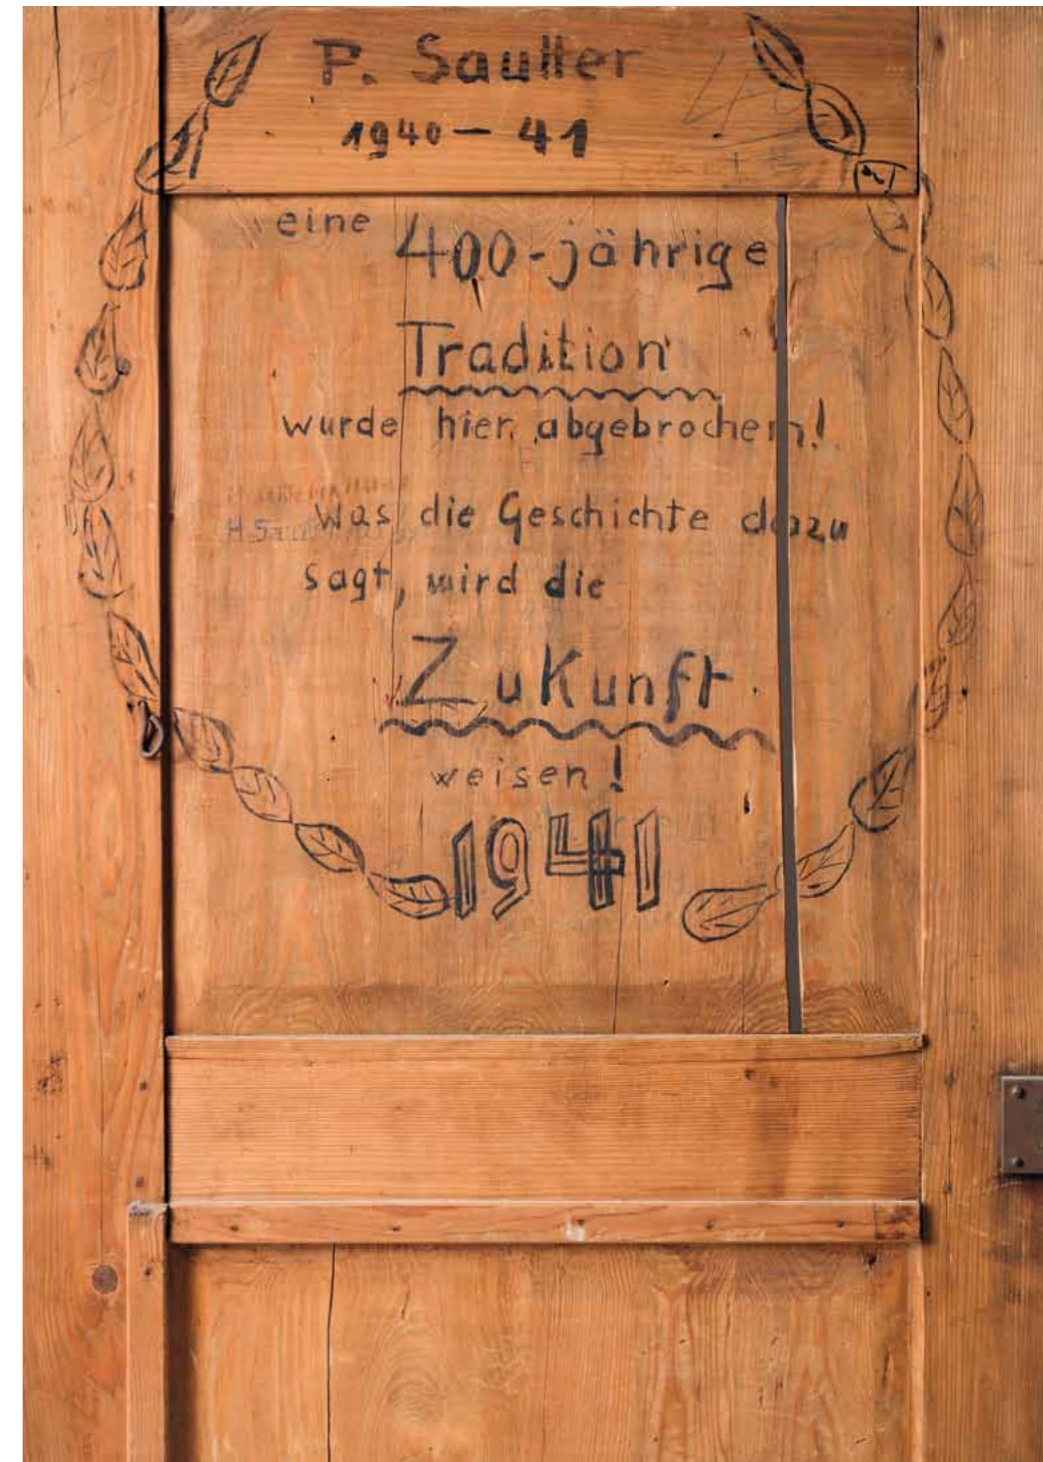 P. Sautter
1940 – 41
eine 400-jährige
Tradition
wurde hier abgebrochen!
Was die Geschichte dazu
sagt, wird die
Zukunft
weisen!
1941